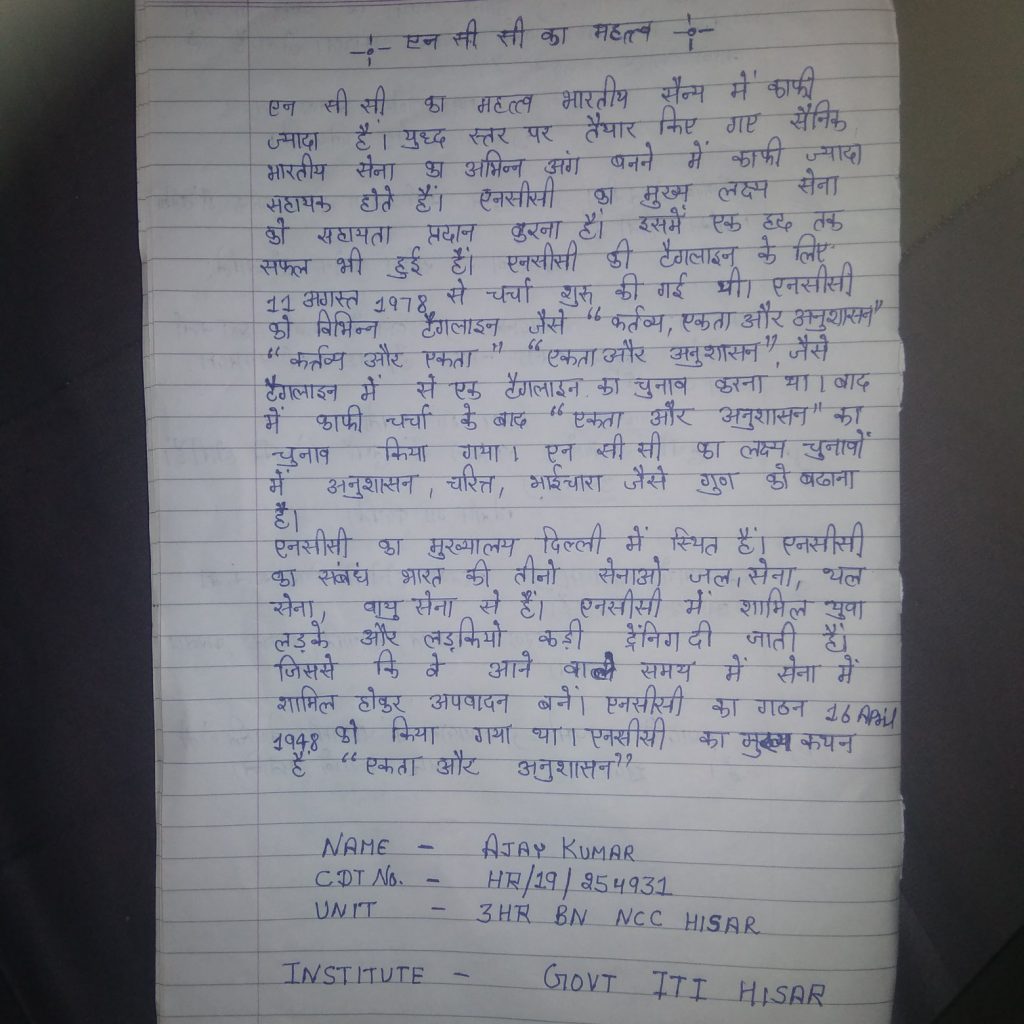 एन सी सी का महत्त्व
एन सी सी का महत्त्व भारतीय सैन्य में काफी
ज्यादा हैं। युध्द स्तर पर तैयार किए गए सैनिक
भारतीय सेना का अभिन्न अंग बनने में काफी ज्यादा
सहायक होते हैं। एनसीसी का मुख्य लक्ष्य सेना
को सहायता प्रदान करना हैं। इसमें एक हद तक
सफल भी हुई हैं। एनसीसी की टैगलाइन के लिए
11 अगस्त 1978 से चर्चा शुरू की गई थी। एनसीसी
को विभिन्न टैगलाइन जैसे “कर्तव्य, एकता और अनुशासन”
“कर्तव्य और एकता” “एकता और अनुशासन” जैसे
टैगलाइन में से एक टैगलाइन का चुनाव करना था। बाद
में काफी चर्चा के बाद “एकता और अनुशासन” का
चुनाव किया गया। एन सी सी का लक्ष्य चुनावों
में अनुशासन, चरित्त, भाईचारा जैसे गुण को बढाना
हैं।
एनसीसी का मुख्यालय दिल्ली में स्थित हैं। एनसीसी
का संबंध भारत की तीनो सेनाओ जल, सेना, थल
सेना, वायु सेना से हैं। एनसीसी में शामिल युवा
लड़के और लड़कियो कड़ी ट्रेंनिग दी जाती हैं।
जिससे कि वे आने वाले समय में सेना में
शामिल होकर अपवादन बनें। एनसीसी का गठन 16 April
1948 को किया गया था। एनसीसी का मुख्य कथन
हैं “एकता और अनुशासन”
NAME - AJAY KUMAR
CDT No. - HR/19/254931
UNIT - 3HR BN NCC HISAR
INSTITUTE - GOVT ITI HISAR